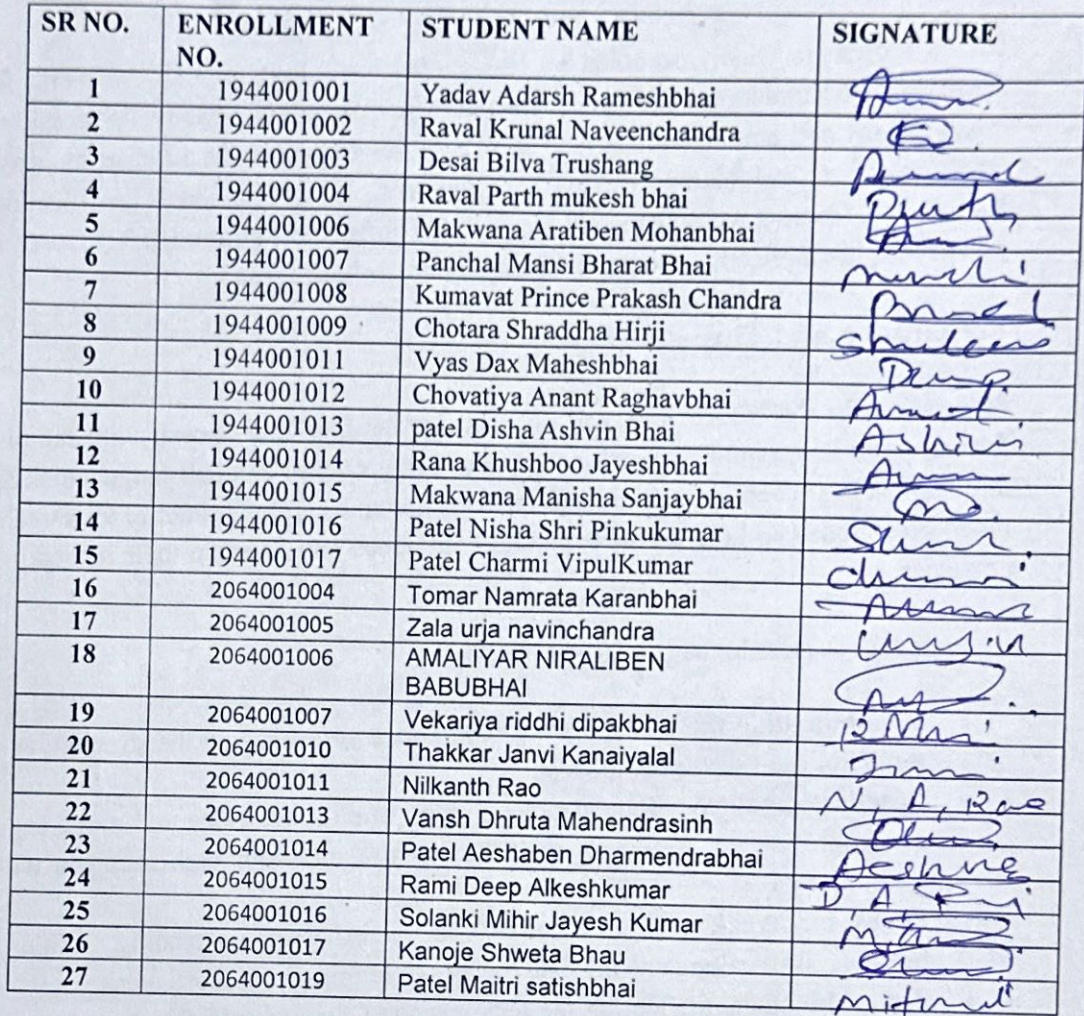 SR NO. ENROLLMENT STUDENT NAME SIGNATURE
NO.
1 1944001001 Yadav Adarsh Rameshbhai
2 1944001002 Raval Krunal Naveenchandra
3 1944001003 Desai Bilva Trushang
4 1944001004 Raval Parth mukesh bhai
5 1944001006 Makwana Aratiben Mohanbhai
6 1944001007 Panchal Mansi Bharat Bhai
7 1944001008 Kumavat Prince Prakash Chandra
8 1944001009 Chotara Shraddha Hirji
9 1944001011 Vyas Dax Maheshbhai
10 1944001012 Chovatiya Anant Raghavbhai
11 1944001013 patel Disha Ashvin Bhai
12 1944001014 Rana Khushboo Jayeshbhai
13 1944001015 Makwana Manisha Sanjaybhai
14 1944001016 Patel Nisha Shri Pinkukumar
15 1944001017 Patel Charmi VipulKumar
16 2064001004 Tomar Namrata Karanbhai
17 2064001005 Zala urja navinchandra
18 2064001006 AMALIYAR NIRALIBEN
BABUBHAI
19 2064001007 Vekariya riddhi dipakbhai
20 2064001010 Thakkar Janvi Kanaiyalal
21 2064001011 Nilkanth Rao N. A. Rao
22 2064001013 Vansh Dhruta Mahendrasinh
23 2064001014 Patel Aeshaben Dharmendrabhai
24 2064001015 Rami Deep Alkeshkumar
25 2064001016 Solanki Mihir Jayesh Kumar
26 2064001017 Kanoje Shweta Bhau
27 2064001019 Patel Maitri satishbhai